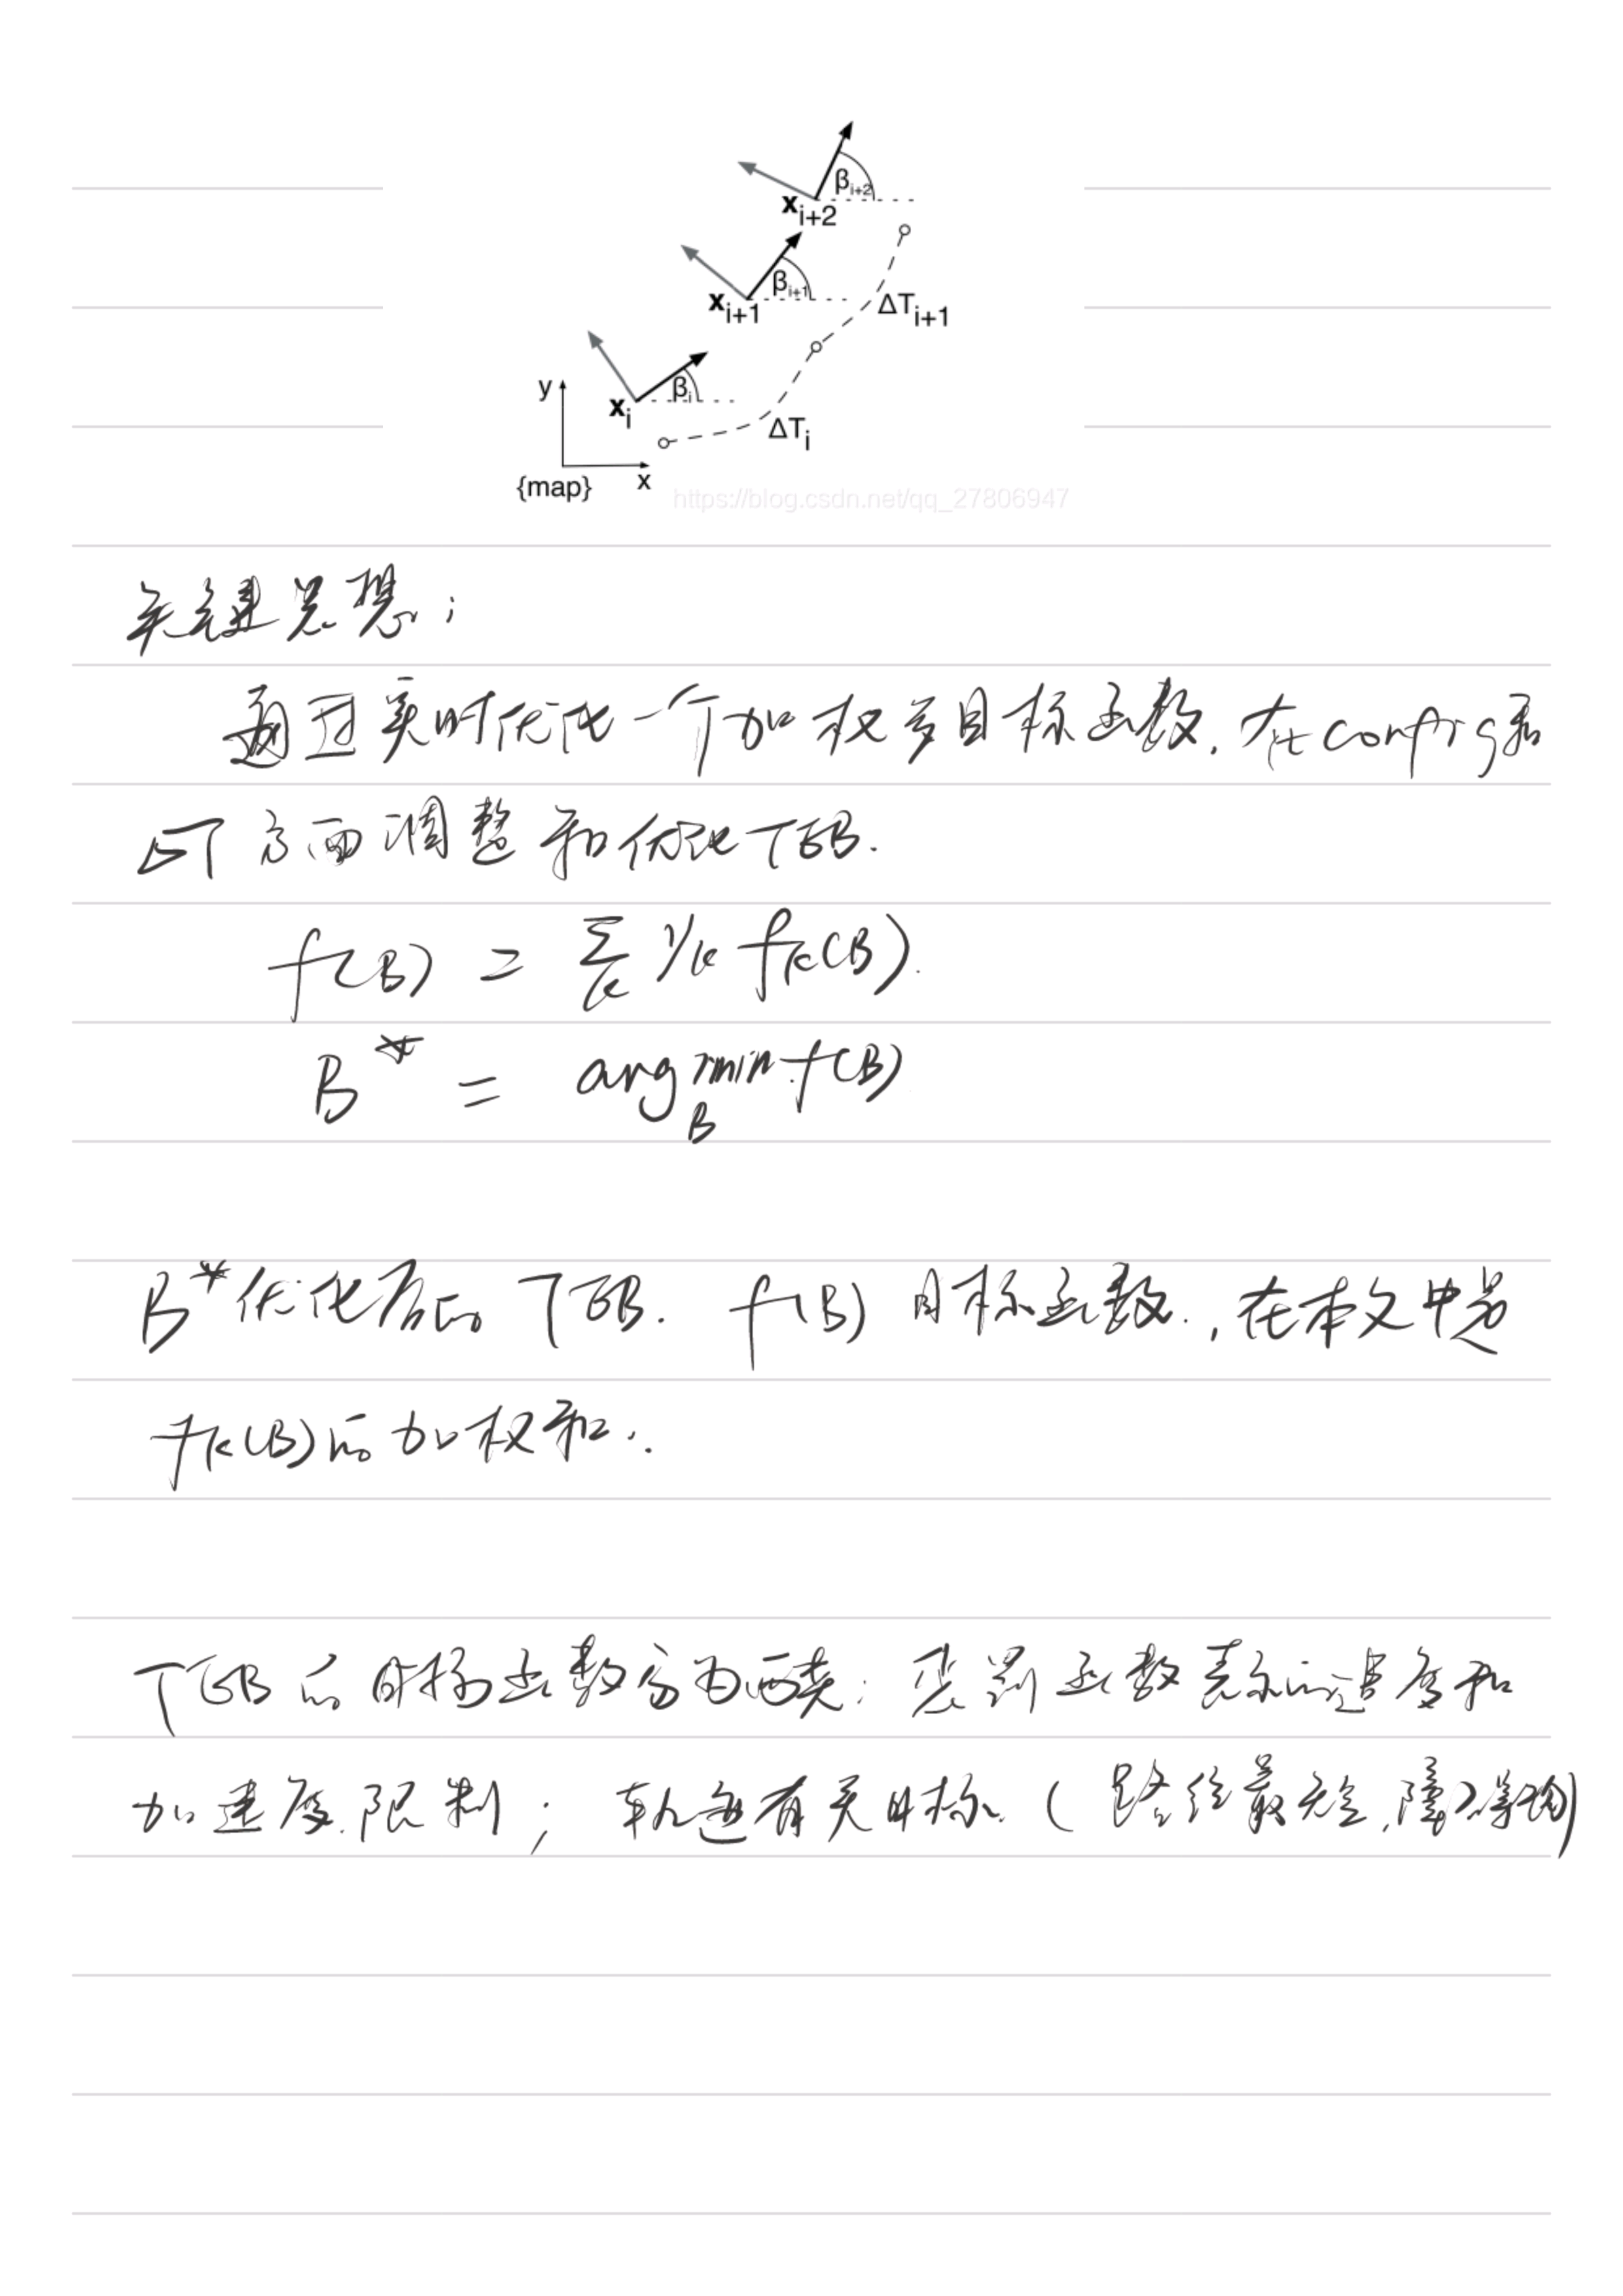 β_{i+2}
x_{i+2}
β_{i+1}
x_{i+1}
ΔT_{i+1}
y
β_i
x_i
ΔT_i
{map}
x
https://blog.csdn.net/qq_27806947
关键思想:
通过实时优化一个加权多目标函数. 在config和
ΔT方面调整和优化TEB.
f(B) = Σ_k γ_k f_k(B).
B* = arg min_B f(B)
B*优化后的 TEB. f(B) 目标函数., 在本文中为
f_k(B)的加权和..
TEB的目标函数分为两类: 惩罚函数表示的速度和
加速度.限制; 轨迹有关目标.(路径最短,障碍物)